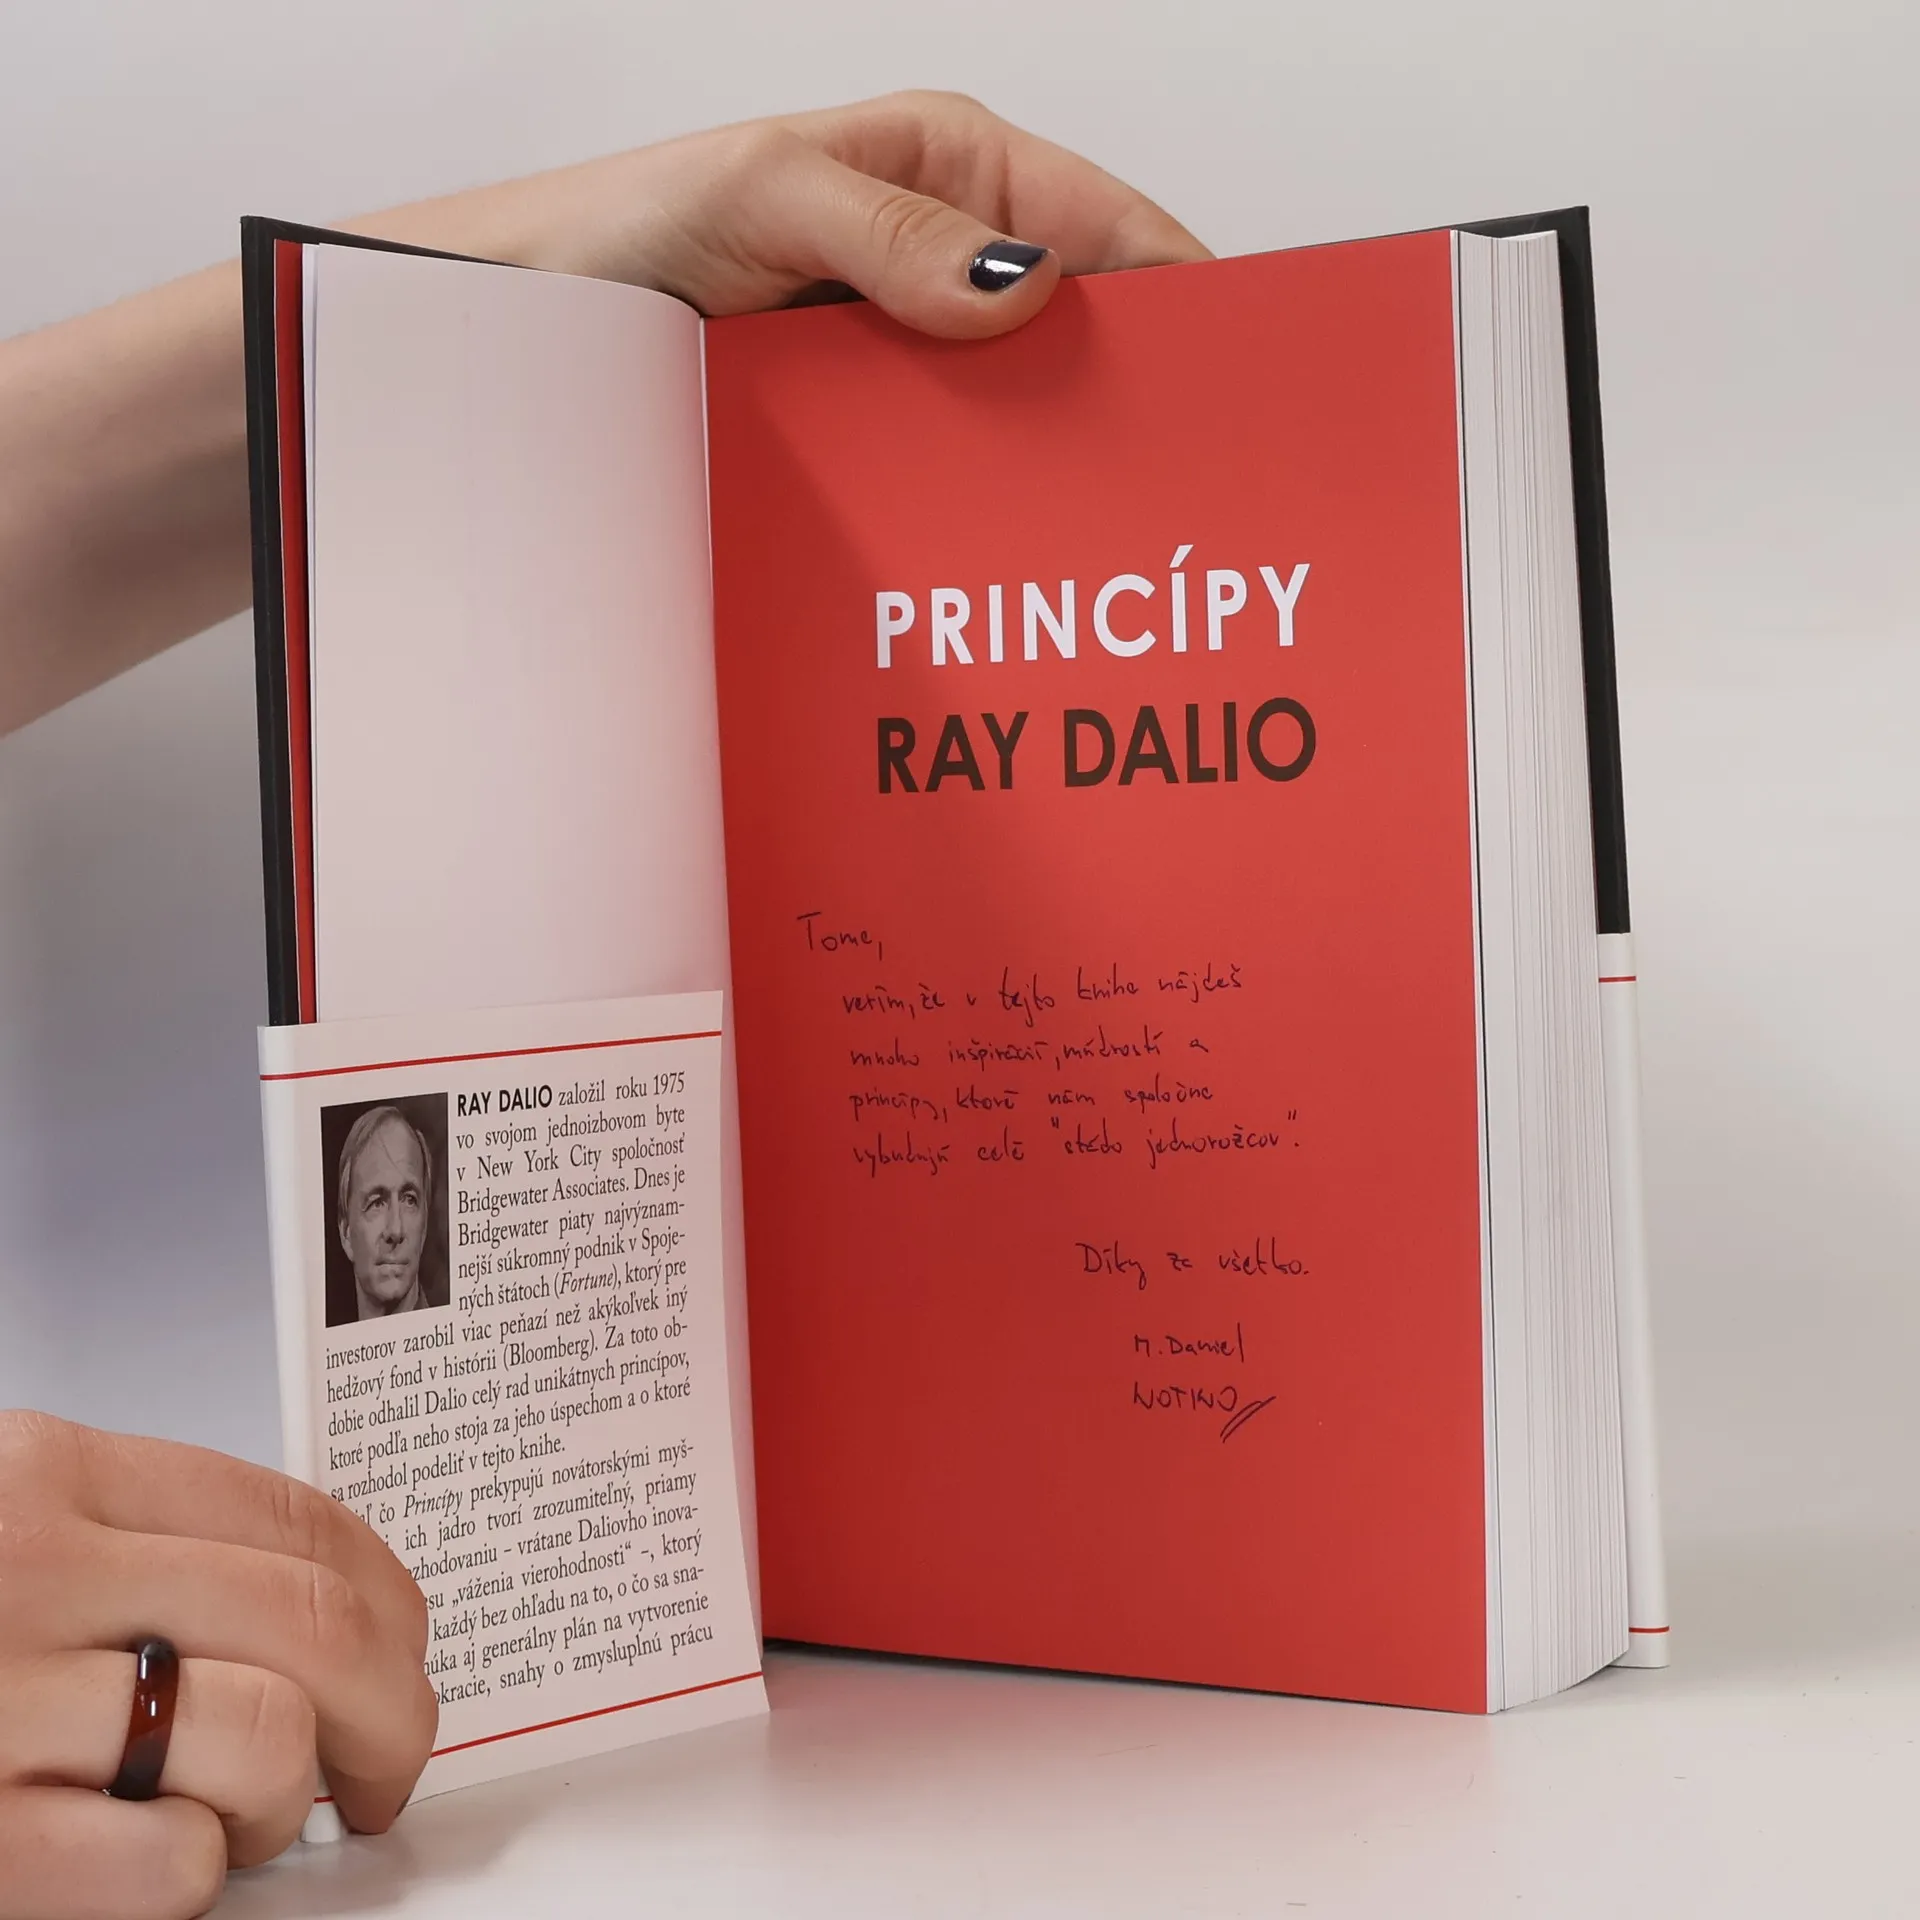 RAY DALIO založil roku 1975
vo svojom jednoizbovom byte
v New York City spoločnosť
Bridgewater Associates. Dnes je
Bridgewater piaty najvýznam-
nejší súkromný podnik v Spoje-
ných štátoch (Fortune), ktorý pre
investorov zarobil viac peňazí než akýkoľvek iný
hedžový fond v histórii (Bloomberg). Za toto ob-
dobie odhalil Dalio celý rad unikátnych princípov,
ktoré podľa neho stoja za jeho úspechom a o ktoré
sa rozhodol podeliť v tejto knihe.
čo Princípy prekypujú novátorskými myš-
ich jadro tvorí zrozumiteľný, priamy
zhodovaniu – vrátane Daliovho inova-
su „váženia vierohodnosti“ –, ktorý
každý bez ohľadu na to, o čo sa sna-
núka aj generálny plán na vytvorenie
okracie, snahy o zmysluplnú prácu
PRINCÍPY
RAY DALIO
Tome,
verím, že v tejto knihe nájdeš
mnoho inšpirácií, múdrostí a
princípy, ktoré nám spoločne
vybudujú celé "stádo jednorožcov".
Díky za všetko.
M. Daniel
NOTINO